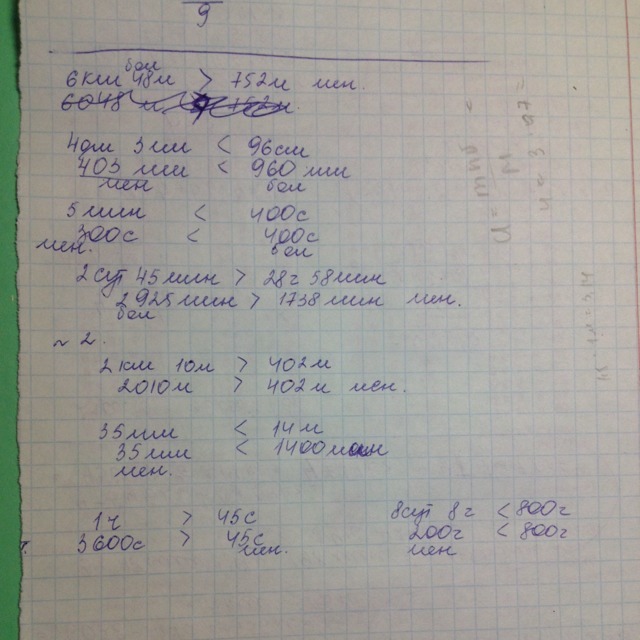 9
бол
6км 48м > 752м мен.
6048 м
4дм 3мм < 96см
403 мм < 960 мм
мен бол
5мин < 400с
300с < 400с
мен. бол
2сут 45мин > 28ч 58мин
2925мин > 1738мин мен.
бол
~ 2.
2км 10м > 402м
2010м > 402м мен.
35мм < 14м
35мм < 1400мм
мен.
1ч > 45с
3600с > 45с
мен.
8сут 8ч < 800ч
200ч < 800ч
мен